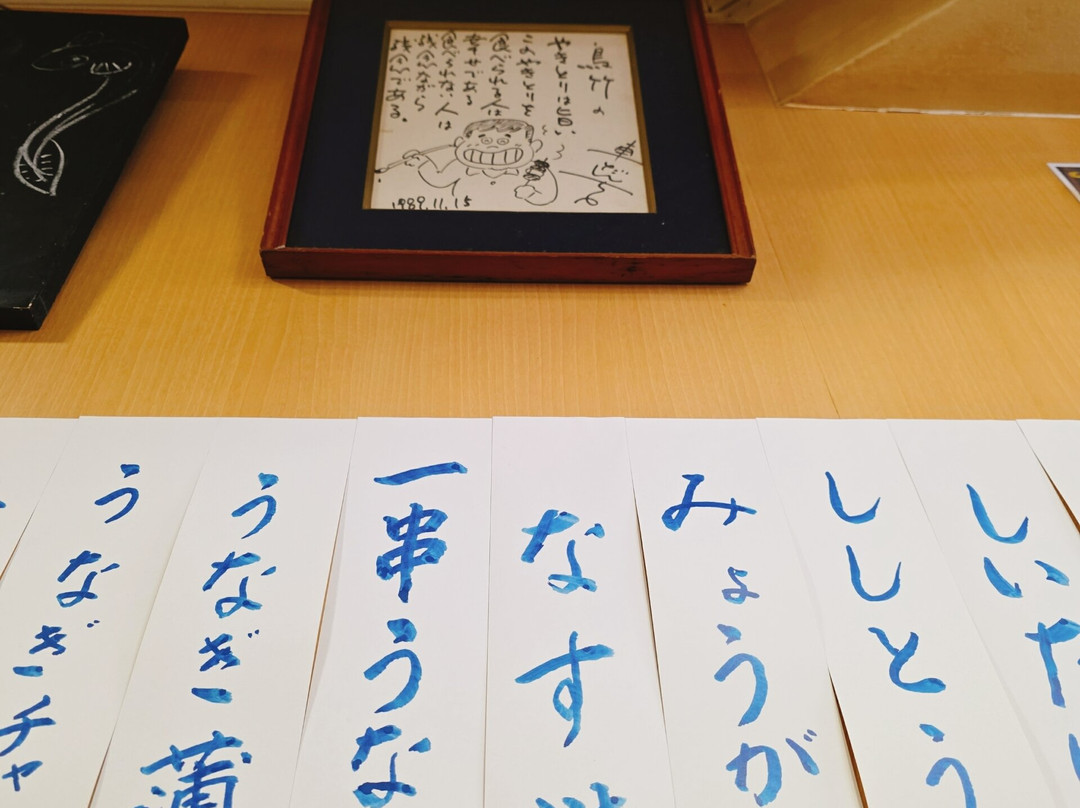 鳥竹の
やきとりは旨い
このやきとりを
食べられる人は
幸せである
食べられない人は
残念ながら
残念である。
1989.11.15
しいた
ししとう
みょうが
なす
一串うな
うなぎ蒲
うなぎチャ